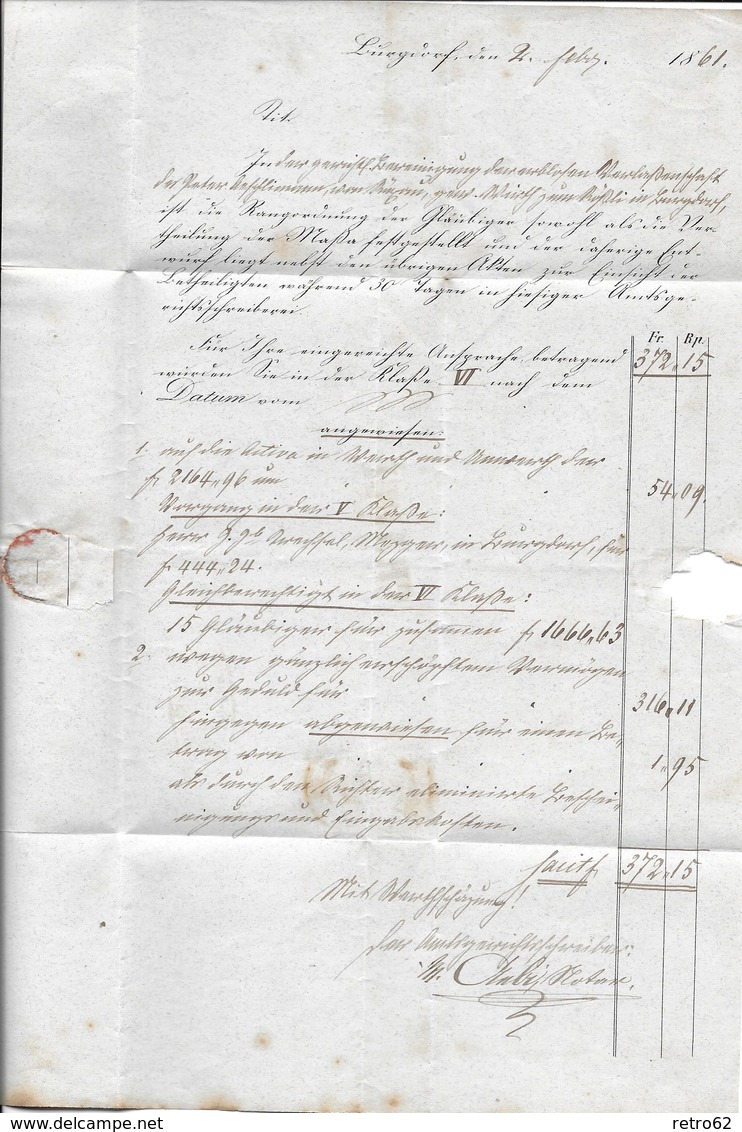 Burgdorf, den 2. Febr. 1861.
Tit.
In der gerichtl. Bereinigung der erblosen Verlaßenschaft
des Peter Aeschlimann, von, gew. Wirth zum Rößli in Burgdorf,
ist die Rangordnung der Gläubiger sowohl als die Ver-
theilung der Maßa festgestellt und der daherige Ent-
wurf liegt nebst den übrigen Akten zur Einsicht der
Betheiligten während 30 Tagen in hiesiger Amtsge-
richtsschreiberei.
Fr. Rp.
Für Ihre eingereichte Ansprache, betragend 372 " 15
wurden Sie in der Klaße VI nach dem
Datum vom
angewiesen:
1. auf die Activa in Werth und Unwerth der
fr 2164 " 96 um 54 " 09.
Vorgang in der V Klaße:
Herr, Metzger, in Burgdorf, für
fr 444 " 24.
Gleichberechtigt in der VI Klaße:
15 Gläubiger für zusammen fr 1666 " 63
2. wegen gänzlich erschöpftem Vermögen
zur Geduld für 316 " 11
hingegen abgewiesen für einen Be-
trag von 1 " 95
als durch den Richter eliminirte Beschei-
nigungs und Eingabskosten.
facit fr 372 " 15
Mit Werthschäzung!
Der Amtsgerichtsschreiber:
Notar.
delcampe.net
retro62